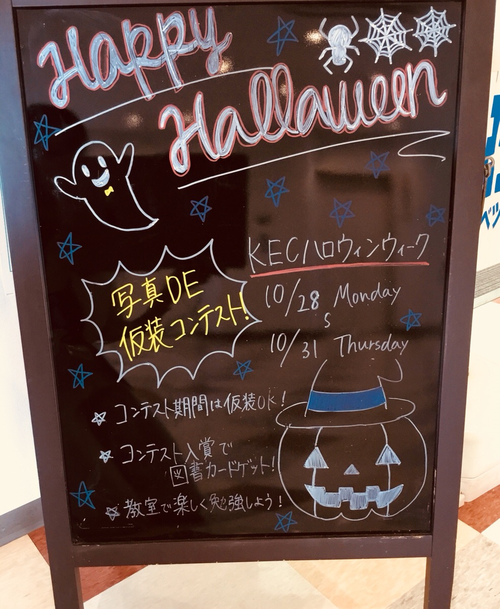 Happy
Halloween
写真DE
仮装コンテスト!
KECハロウィンウィーク
10/28 Monday
S
10/31 Thursday
☆コンテスト期間は仮装OK!
☆コンテスト入賞で
図書カードゲット!
☆教室で楽しく勉強しよう!